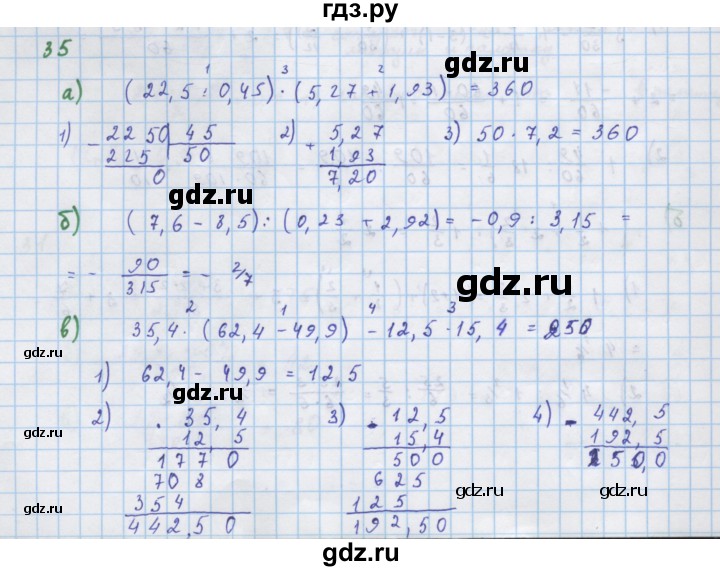 гдз.ру
35
а) (22,5 : 0,45) · (5,27 + 1,93) = 360
1 3 2
1) - 2250 | 45
225 50
0
2) + 5,27
1,93
7,20
3) 50 · 7,2 = 360
б) (7,6 - 8,5) : (0,23 + 2,92) = -0,9 : 3,15 =
= - 90/315 = - 2/7
в) 35,4 · (62,4 - 49,9) - 12,5 · 15,4 = 250
2 1 4 3
1) 62,4 - 49,9 = 12,5
2) · 35,4
12,5
1770
708
354
442,50
3) · 12,5
15,4
500
625
125
192,50
4) - 442,5
192,5
250,0
gdz.ru
gdz.ru
gdz.ru
gdz.ru
gdz.ru
gdz.ru
gdz.ru
gdz.ru
gdz.ru
gdz.ru